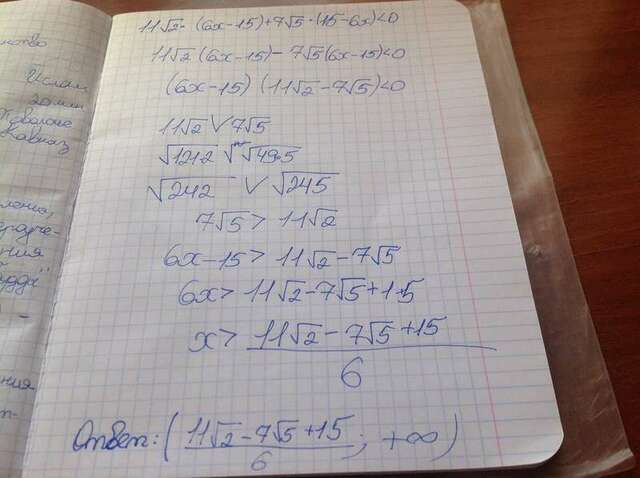 11√2 · (6x-15)+7√5 · (15-6x)<0
11√2 (6x-15)- 7√5(6x-15)<0
(6x-15) (11√2-7√5)<0
11√2 ∨ 7√5
√121·2 ∨ √49·5
√242 ∨ √245
7√5 > 11√2
6x-15 > 11√2-7√5
6x > 11√2-7√5+15
x > (11√2-7√5+15)/6
Ответ: ((11√2-7√5+15)/6; +∞)
Ислам
20 млн
Кавказ